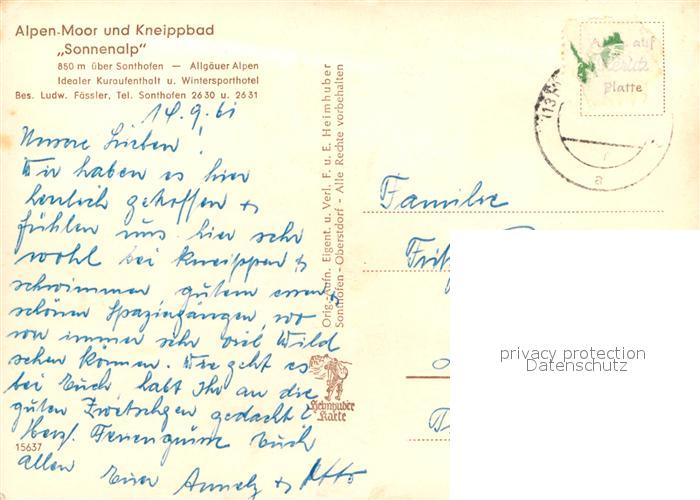 Alpen-Moor und Kneippbad
„Sonnenalp"
850 m über Sonthofen — Allgäuer Alpen
Idealer Kuraufenthalt u. Wintersporthotel
Bes. Ludw. Fässler, Tel. Sonthofen 26 30 u. 26 31
14.9.61
Unsere Lieben!
Wir haben es hier
herrlich getroffen &
fühlen uns hier sehr
wohl bei kneippen &
schwimmen gutem essen &
schönen Spaziergängen, wo
wir immer sehr viel Wild
sehen können. Wie geht es
bei Euch, habt Ihr an die
guten Zwetschgen gedacht?
Herzl. Feriengrüsse Euch
allen Euer Annely & Otto
15637
Orig.-Aufn. Eigent. u. Verl. F. u. E. Heimhuber
Sonthofen - Oberstdorf - Alle Rechte vorbehalten
Heimhuber
Karte
auf
Platte
(13
a
Familie
privacy protection
Datenschutz